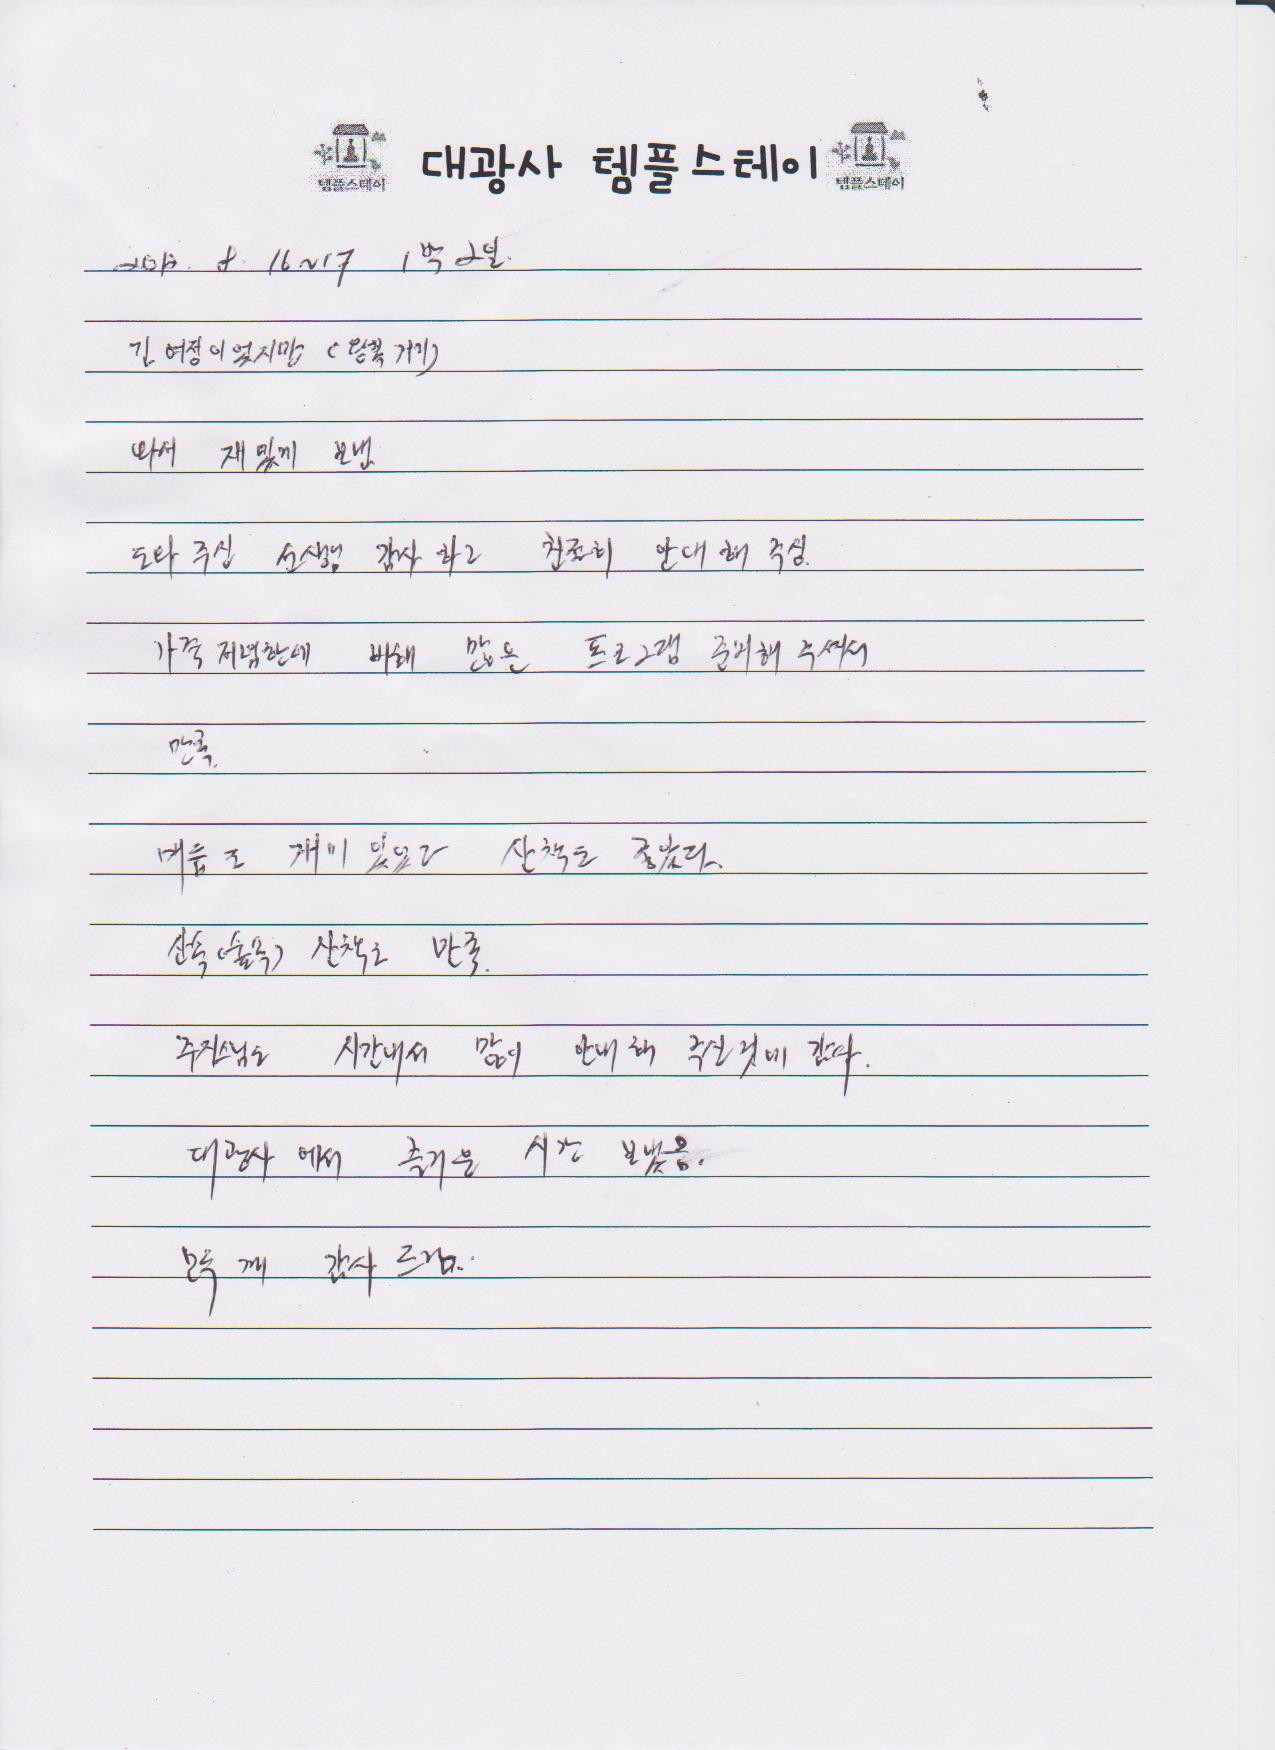 템플스테이 대광사 템플스테이 템플스테이
8. 16~17 1박 2일.
긴 여정이었지만 (왕복 거리)
와서 재밌게 보냄.
도와 주신 선생님 감사하고 친절히 안내해 주심.
가격 저렴한에 비해 많은 프로그램 준비해 주셔서
만족.
매듭도 재미있었고 산책도 좋았다.
산속(숲속) 산책도 만족.
주지스님도 시간내서 많이 안내해 주신것에 감사.
대광사에서 즐거운 시간 보냈음.
모두께 감사드림.